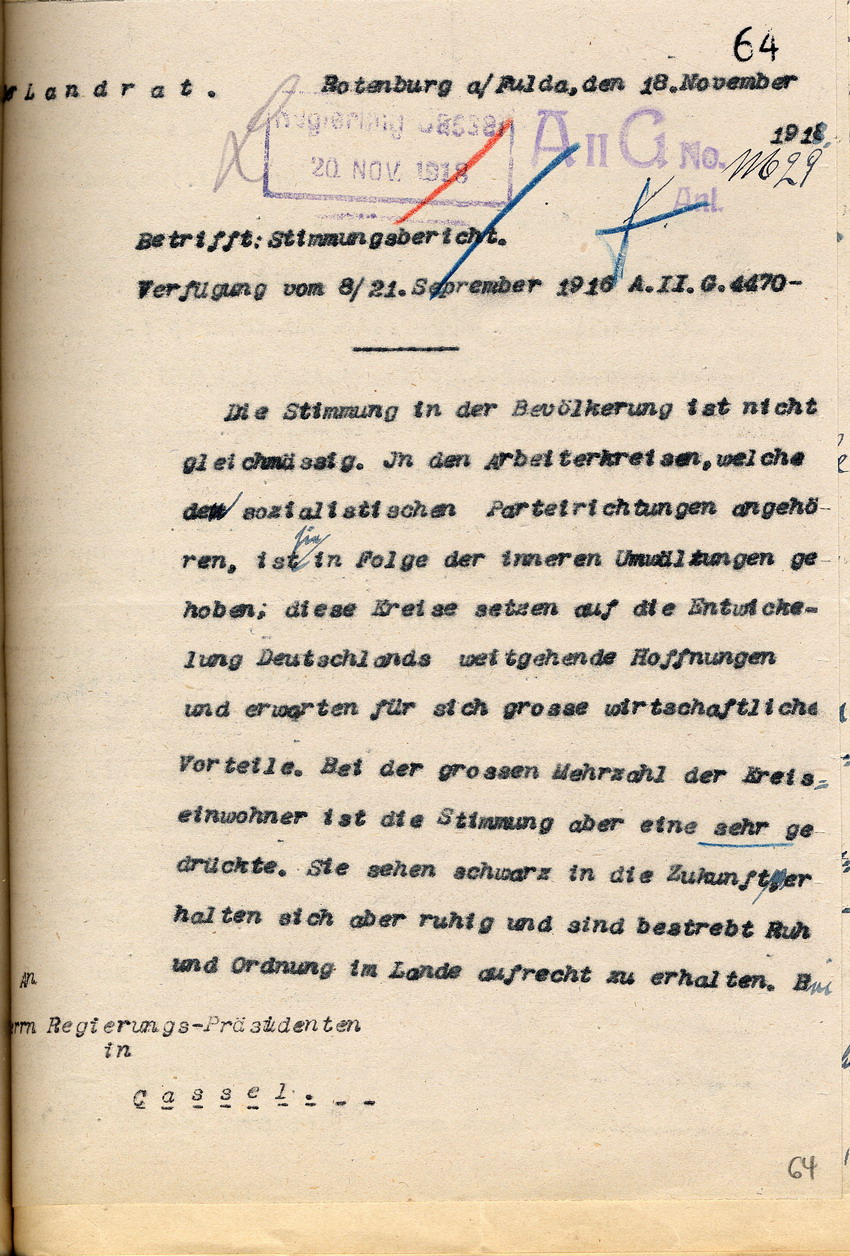 64
Landrat.
Rotenburg a/Fulda,den 18.November
1918.
Regierung Cassel
20 NOV. 1918
A II G No.
Anl.
Betrifft:Stimmungsbericht.
Verfügung vom 8/21.Seprember 1916 A.II.G.4470-
Die Stimmung in der Bevölkerung ist nicht
gleichmässig. Jn den Arbeiterkreisen,welche
den sozialistischen Parteirichtungen angehö-
ren, ist sie in Folge der inneren Umwälzungen ge
hoben; diese Kreise setzen auf die Entwicke-
lung Deutschlands weitgehende Hoffnungen
und erwarten für sich grosse wirtschaftliche
Vorteile. Bei der grossen Mehrzahl der Kreis=
einwohner ist die Stimmung aber eine sehr ge
drückte. Sie sehen schwarz in die Zukunft,er
halten sich aber ruhig und sind bestrebt Ruh
und Ordnung im Lande aufrecht zu erhalten. Bei
An
errn Regierungs-Präsidenten
in
Cassel.--
64